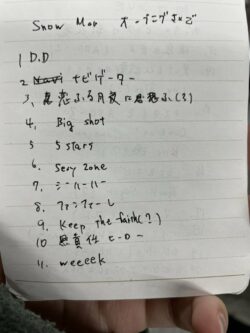 Snow Man オープニングまで
1 D.D
2 ナビゲーター
3、悲恋ふる月夜に君想ふ(?)
4、Big shot
5 5 stars
6. Sexy zone
7、シーハーハー
8、ファンファーレ
9. Keep the faith(?)
10 無責任ヒーロー
11. weeeek